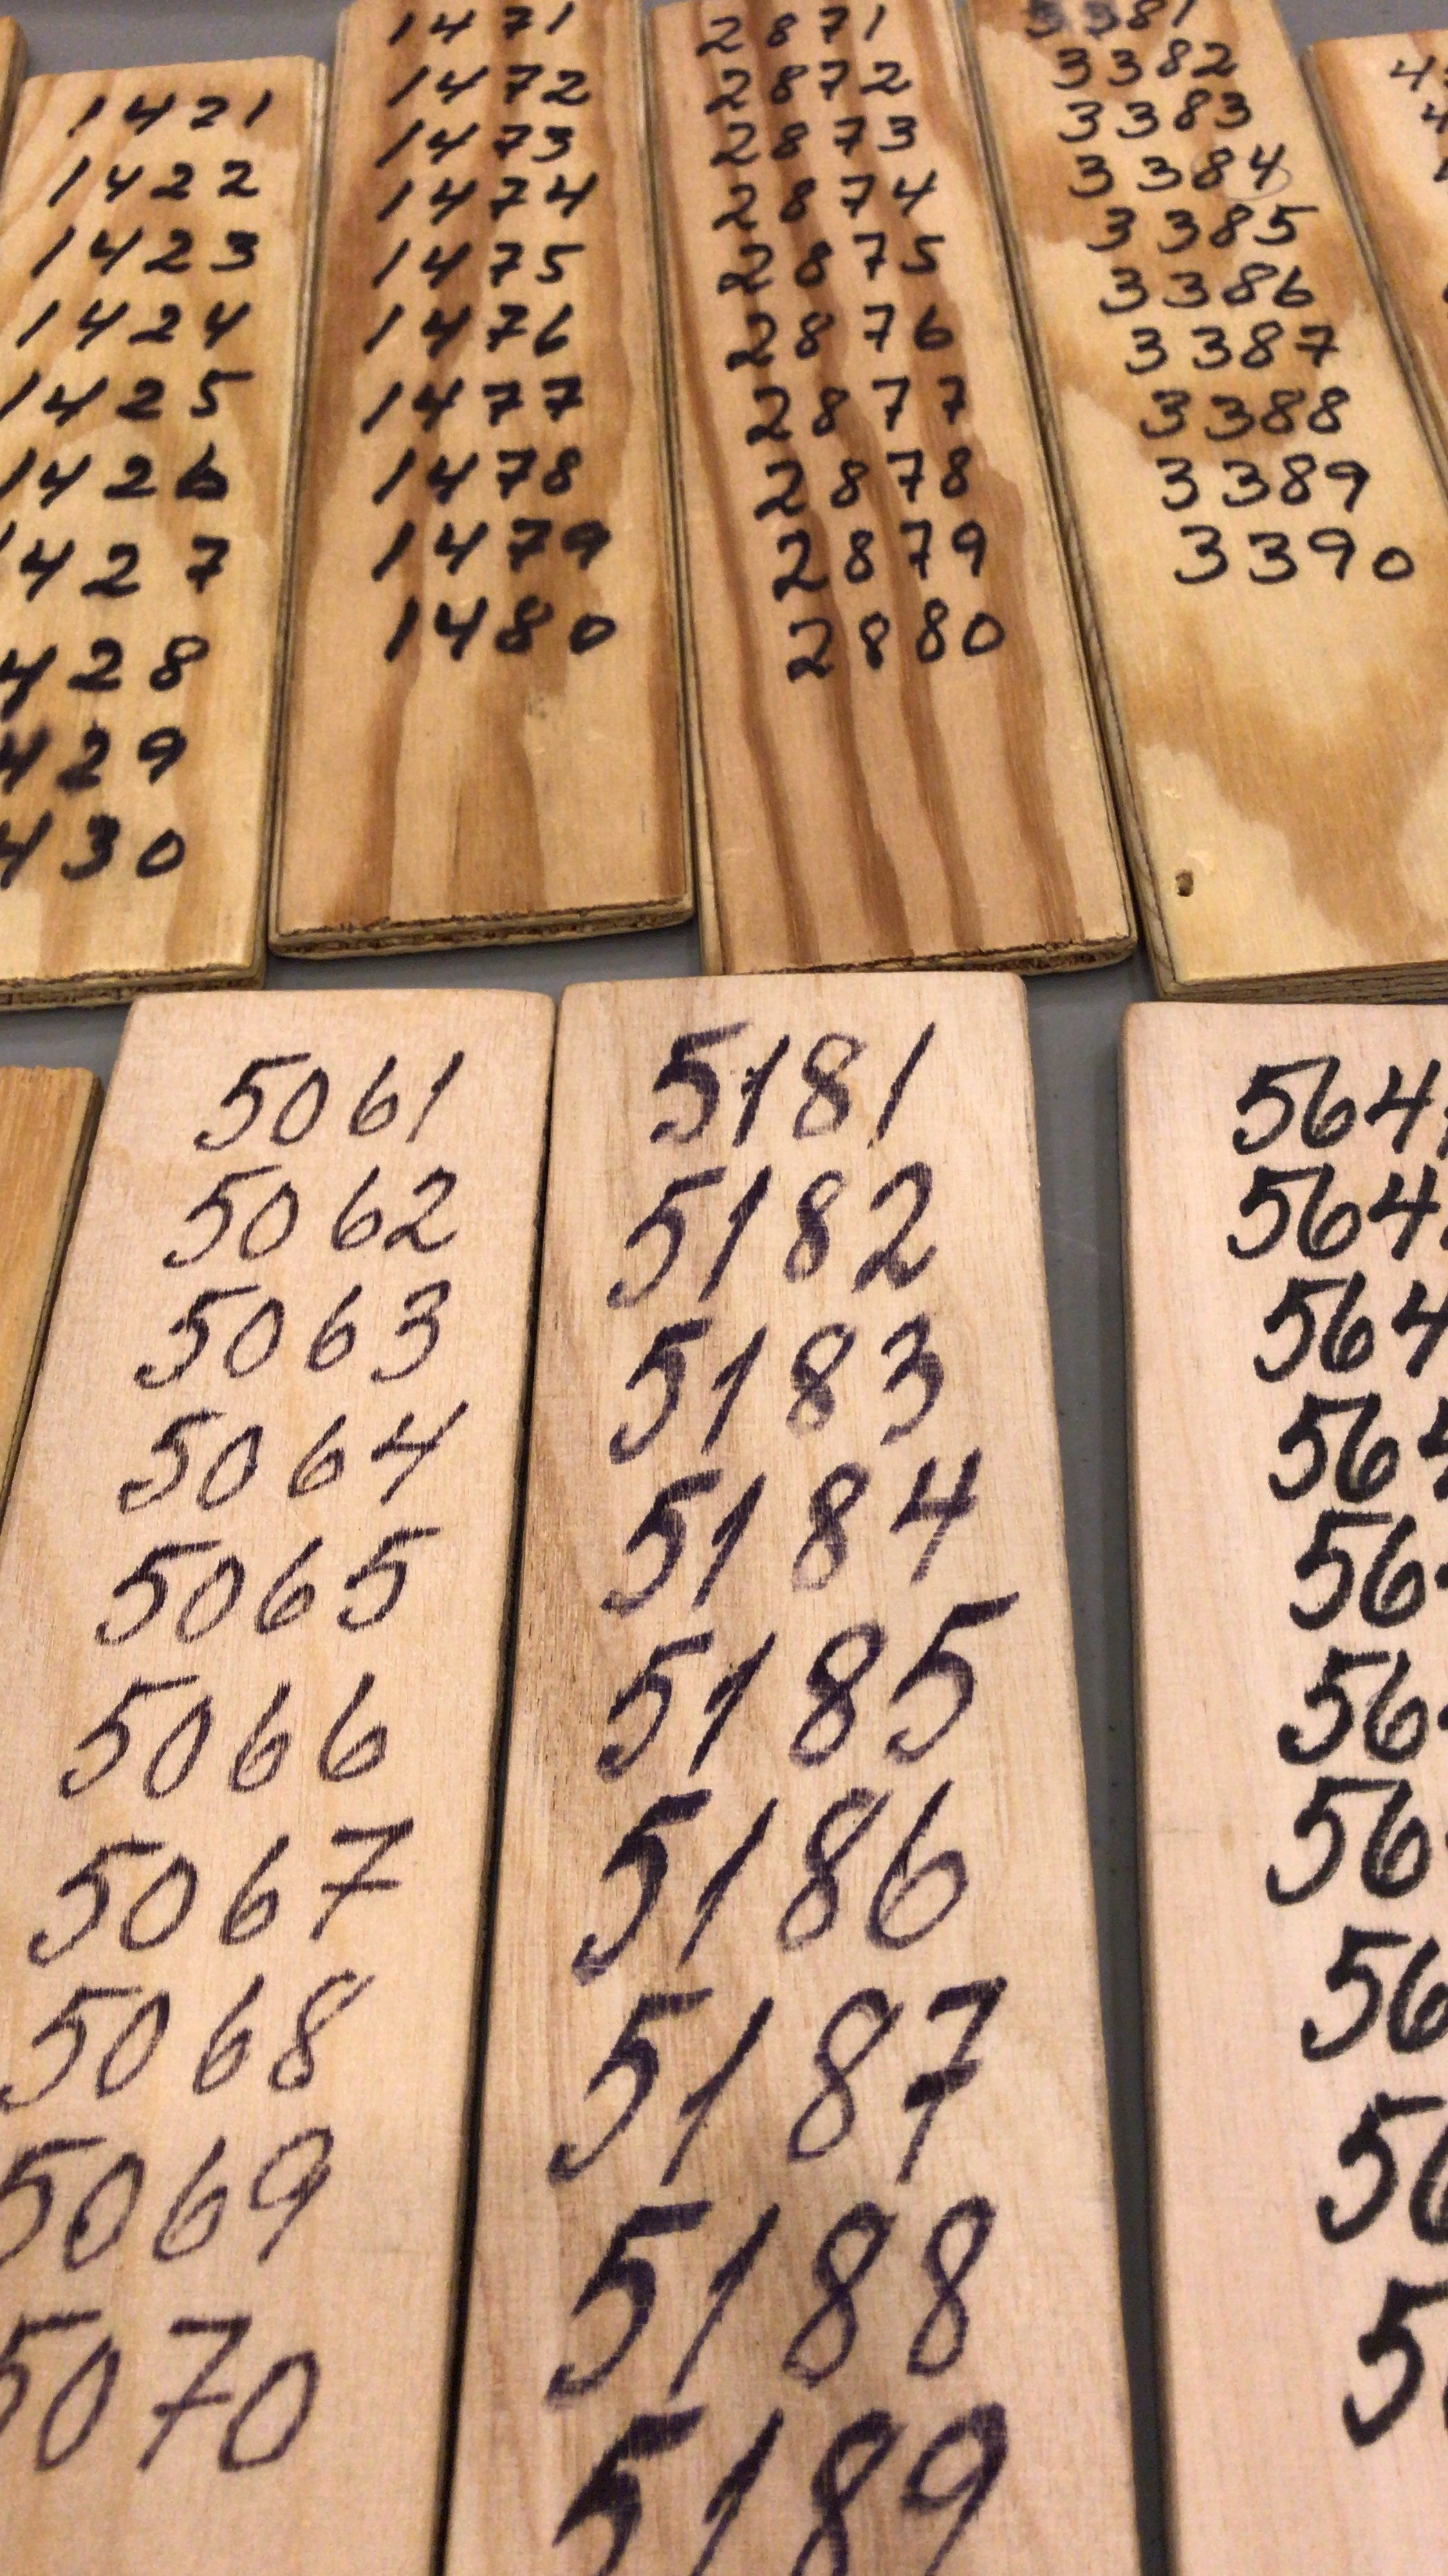 1421
1422
1423
1424
1425
1426
427
428
429
430
1471
1472
1473
1474
1475
1476
1477
1478
1479
1480
2871
2872
2873
2874
2875
2876
2877
2878
2879
2880
3381
3382
3383
3384
3385
3386
3387
3388
3389
3390
5061
5062
5063
5064
5065
5066
5067
5068
5069
5070
5181
5182
5183
5184
5185
5186
5187
5188
5189
564
564
564
564
56
56
56
56
56
5